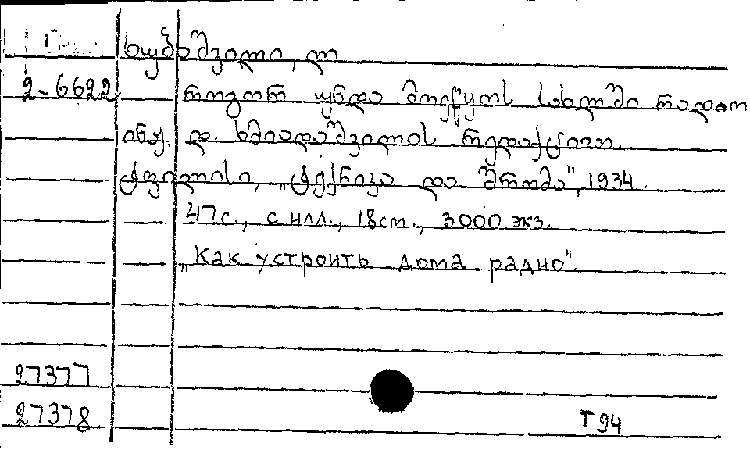 ხუბაშვილი, ლ
2-6622 როგორ უნდა მოეწყოს სახლში რადიო
ინჟ. დ. ხმიადაშვილის რედაქციით.
ტფილისი, „ტექნიკა და შრომა", 1934.
47с., с илл., 18см., 3000 экз.
„Как устроить дома радио".
27377
27378 T 94